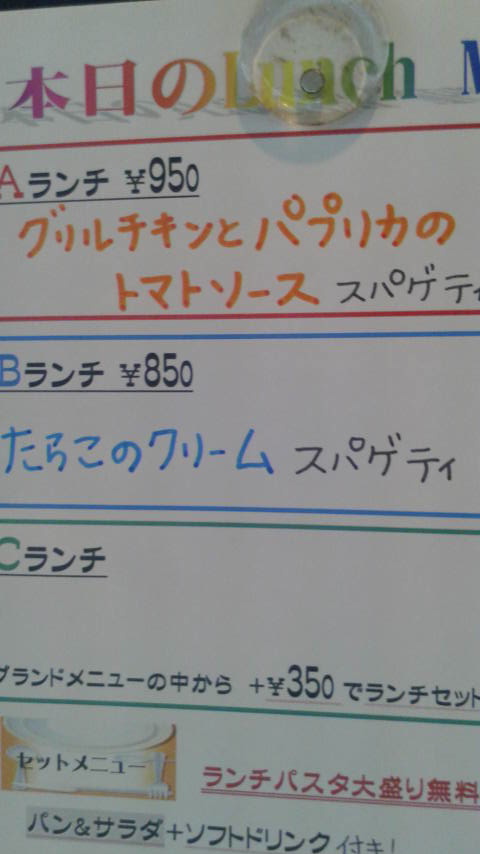 本日のLunch M
Aランチ ¥950
グリルチキンとパプリカの
トマトソース スパゲティ
Bランチ ¥850
たらこのクリーム スパゲティ
Cランチ
グランドメニューの中から +¥350でランチセット
セットメニュー
ランチパスタ大盛り無料
パン&サラダ+ソフトドリンク付き!